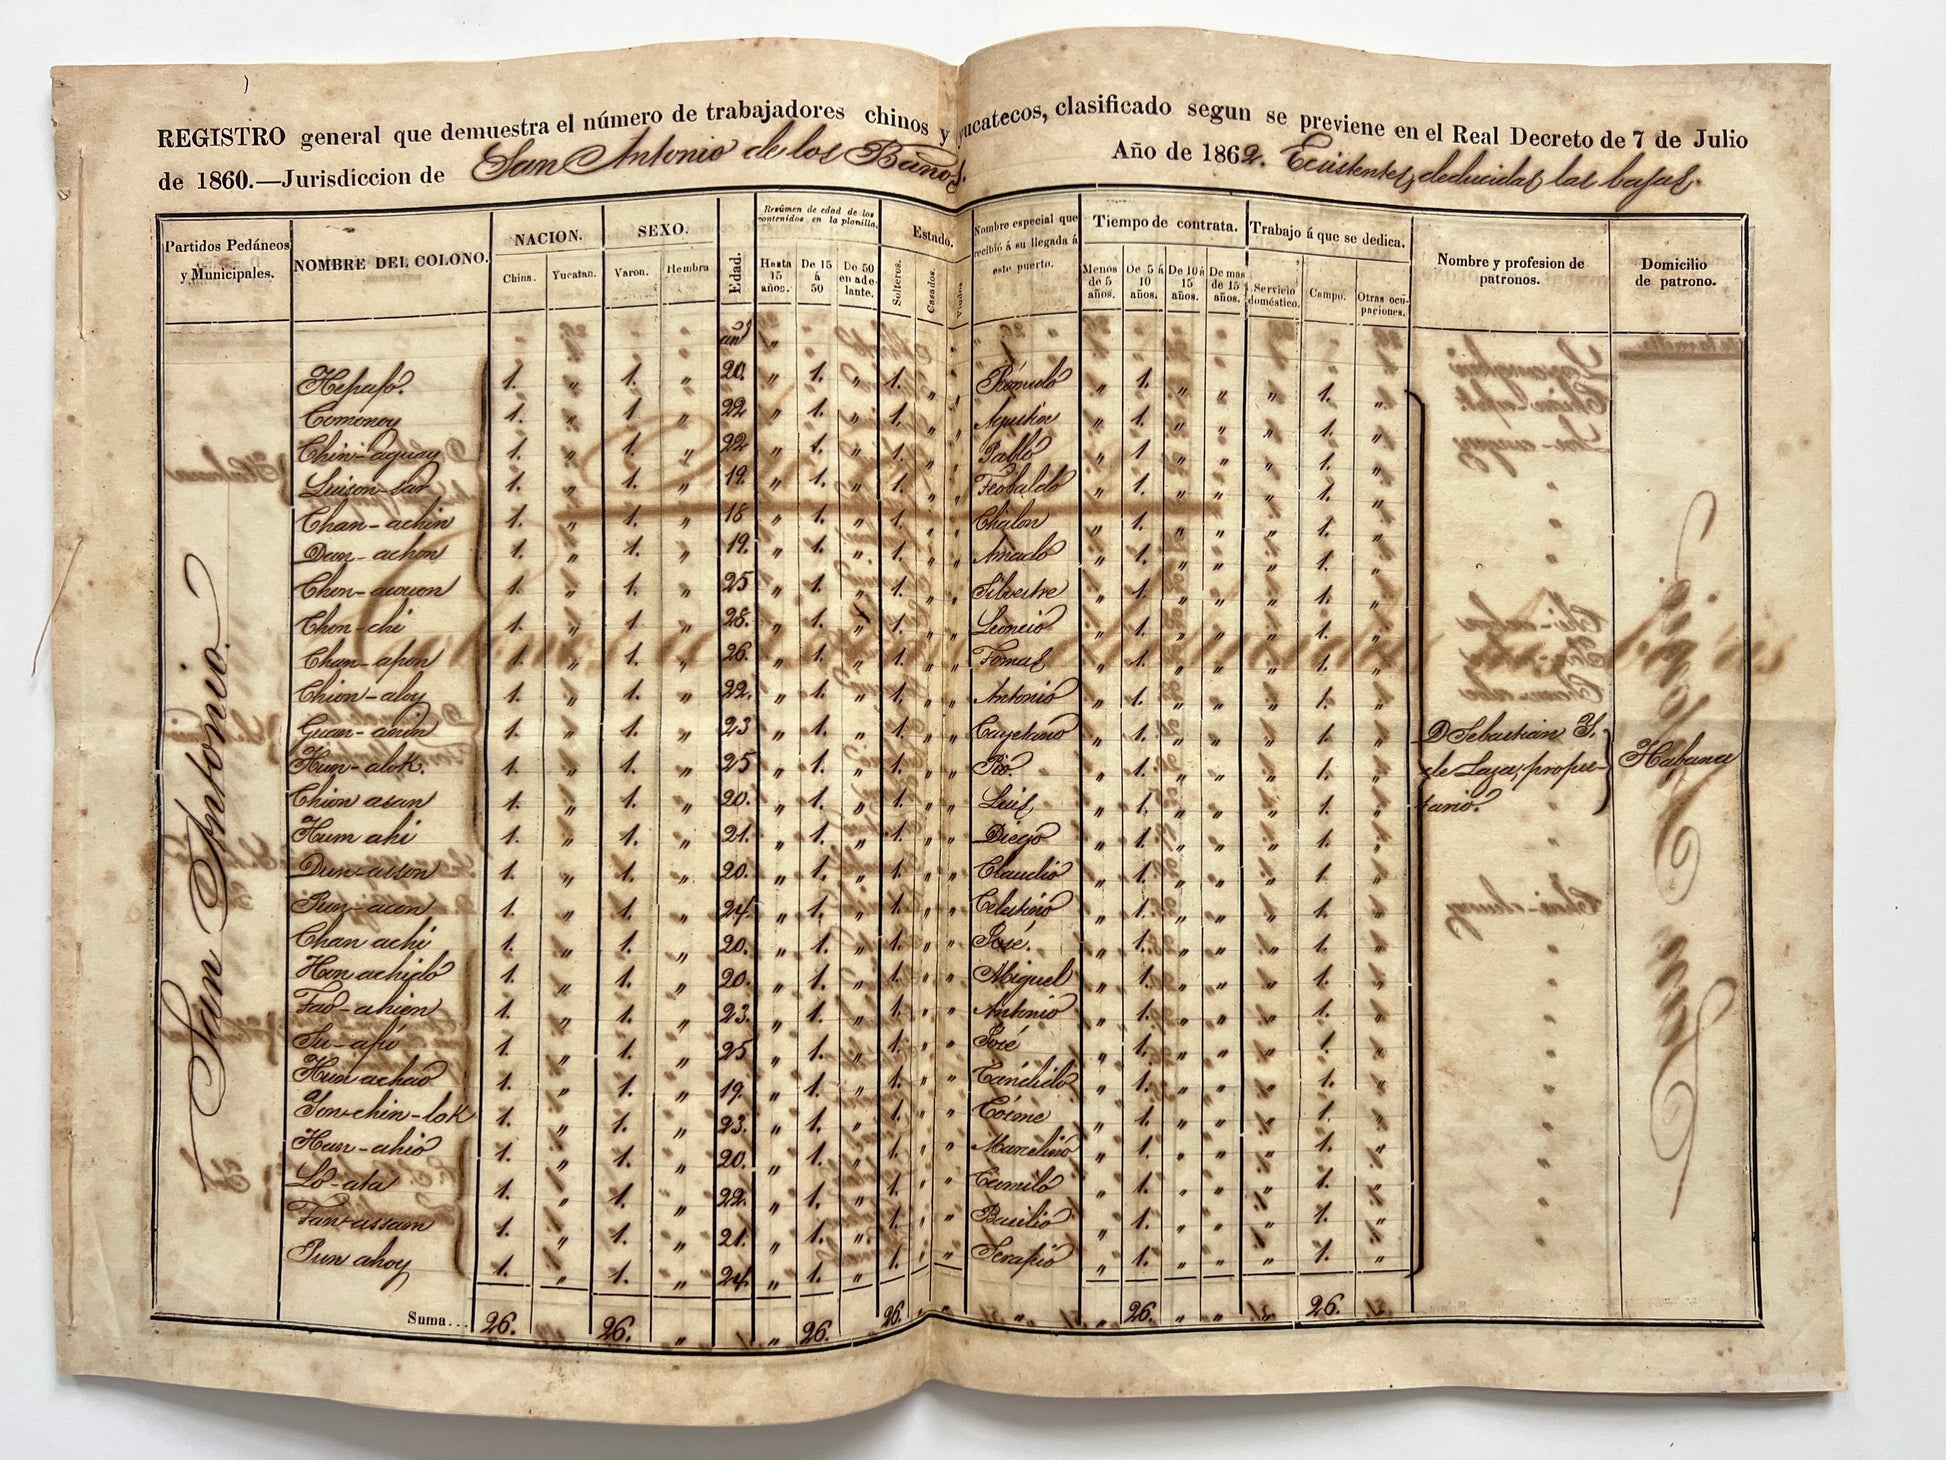 REGISTRO general que demuestra el número de trabajadores chinos y yucatecos, clasificado segun se previene en el Real Decreto de 7 de Julio
de 1860.—Jurisdiccion de San Antonio de los Baños. Año de 1862. Ecsistentes, deducidas las bajas.
Partidos Pedáneos y Municipales. NOMBRE DEL COLONO. NACION. China. Yucatan. SEXO. Varon. Hembra Edad. Resúmen de edad de los contenidos en la planilla. Hasta 15 años. De 15 á 50 De 50 en adelante. Estado. Solteros. Casados. Viudos. Nombre especial que recibió á su llegada á este puerto. Tiempo de contrata. Menos de 5 años. De 5 á 10 años. De 10 á 15 años. De mas de 15 años. Trabajo á que se dedica. Servicio doméstico. Campo. Otras ocupaciones. Nombre y profesion de patronos. Domicilio de patrono.
San Antonio.
Hepafó. 1. " 1. " 20. " 1. " 1. " " Rómulo " 1. " " " 1. "
Comonoy 1. " 1. " 22 " 1. " 1. " " Agustin " 1. " " " 1. "
Chin-aguay 1. " 1. " 22 " 1. " 1. " " Pablo " 1. " " " 1. "
Luison-san 1. " 1. " 19. " 1. " 1. " " Teobaldo " 1. " " " 1. "
Chan-achin 1. " 1. " 18 " 1. " 1. " " Chalon " 1. " " " 1. "
Dan-achon 1. " 1. " 19. " 1. " 1. " " Amado " 1. " " " 1. "
Chon- 1. " 1. " 25 " 1. " 1. " " Silvestre " 1. " " " 1. "
Chon-chi 1. " 1. " 28. " 1. " 1. " " Leoncio " 1. " " " 1. "
Chan-apon 1. " 1. " 26. " 1. " 1. " " Tomas " 1. " " " 1. "
Chion-aloy 1. " 1. " 22. " 1. " 1. " " Antonio " 1. " " " 1. "
Guan-anin 1. " 1. " 23 " 1. " 1. " " Cayetano " 1. " " " 1. " D Sebastian Y.
Hun-alok. 1. " 1. " 25 " 1. " 1. " " Pio. " 1. " " " 1. " de Laza, propie- Habana
Chion asan 1. " 1. " 20. " 1. " 1. " " Luis " 1. " " " 1. " tario.
Hum ahi 1. " 1. " 21. " 1. " 1. " " Diego " 1. " " " 1. "
Dun-asson 1. " 1. " 20. " 1. " 1. " " Claudio " 1. " " " 1. "
Pun-acon 1. " 1. " 24. " 1. " 1. " " Celestino " 1. " " " 1. "
Chan achi 1. " 1. " 20. " 1. " 1. " " José. " 1. " " " 1. "
Han achido 1. " 1. " 20. " 1. " 1. " " Miguel " 1. " " " 1. "
Fad-ahion 1. " 1. " 23. " 1. " 1. " " Antonio " 1. " " " 1. "
Su-apó 1. " 1. " 25 " 1. " 1. " " José " 1. " " " 1. "
Hun achao 1. " 1. " 19. " 1. " 1. " " Cándido " 1. " " " 1. "
Son-chin-lok 1. " 1. " 23. " 1. " 1. " " Cósme " 1. " " " 1. "
Han-ahió 1. " 1. " 20. " 1. " 1. " " Marcelino " 1. " " " 1. "
Ló-ata 1. " 1. " 22. " 1. " 1. " " Camilo " 1. " " " 1. "
Fan-assam 1. " 1. " 21. " 1. " 1. " " Basilio " 1. " " " 1. "
Pun ahoy 1. " 1. " 24. " 1. " 1. " " Serapio " 1. " " " 1. "
Suma... 26. 26. " " 26. 26. " " " " 26. " " " 26. "